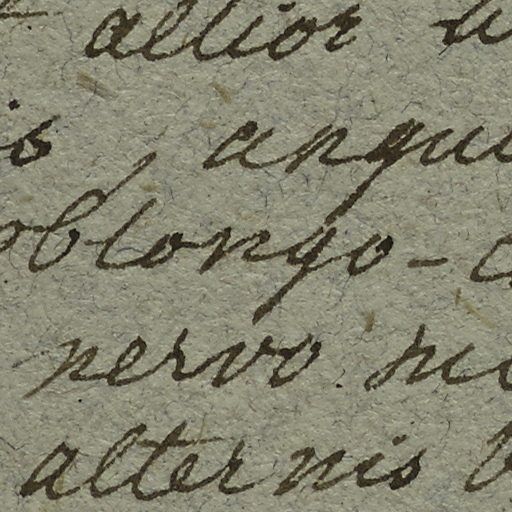 altior
angu
oblongo-
nervo
alternis